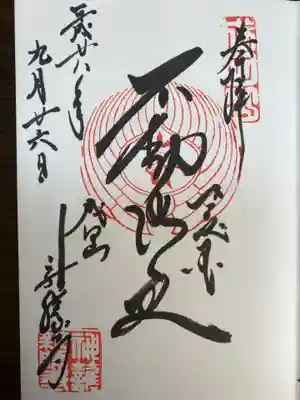 奉拝
下総国
不動明王
成田山
新勝寺
平成廿八年
九月廿六日